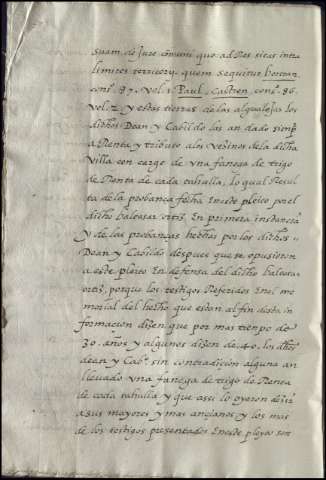 suam, de Jure comuni quo ad Res sitas intra
limites territory. quem sequitur bertran.
cons.º 87. vol. 1. Paul, Castren. cons.º 86.
vol. 2. y estas tierras de las algualejas los
dichos Dean y Cabildo las an dado siempre
a Renta y tributo a los Vezinos de la dicha
Villa con cargo de vna fanega de trigo
de Renta de cada tahulla, lo qual Resul
ta de la probança fecha Eneste pleito por el
dicho baltasar ortiz, En primera instancia
y de las probanças hechas por los dichos
Dean y Cabildo despues que se opusieron
a este pleito En defensa del dicho baltasar
ortiz, porque los testigos Referidos Enel me
morial del hecho que estan al fin desta in
formacion dizen que por mas tiempo de
30. años y algunos dizen de 40. los dhos
dean y Cab.º sin contradicion alguna an
lleuado vna fanega de trigo de Renta
de cada tahulla y que assi lo oyeron dezir
a sus mayores y mas ancianos y los mas
de los testigos presentados Eneste pleyto son